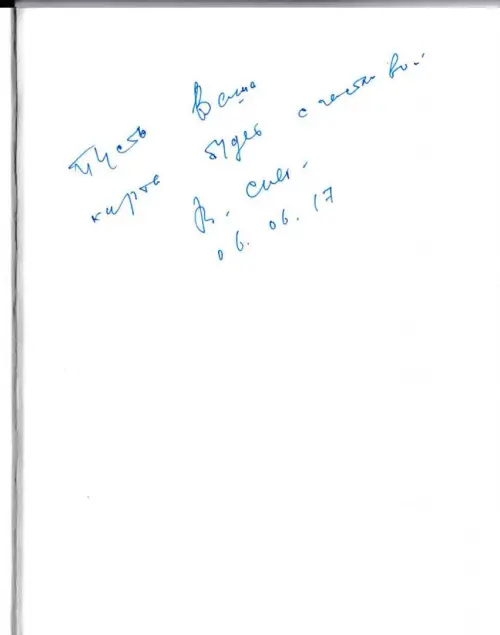 Пусть Ваша
карта будет счастливой
06.06.17